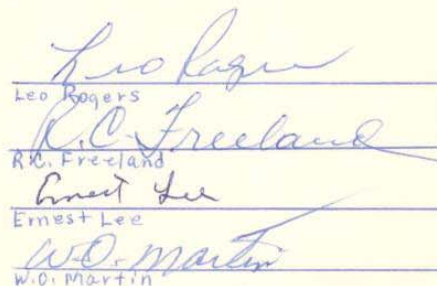 Leo Rogers
Leo Rogers
R.C. Freeland
R.C. Freeland
Ernest Lee
Ernest Lee
W.O. Martin
W.O. Martin